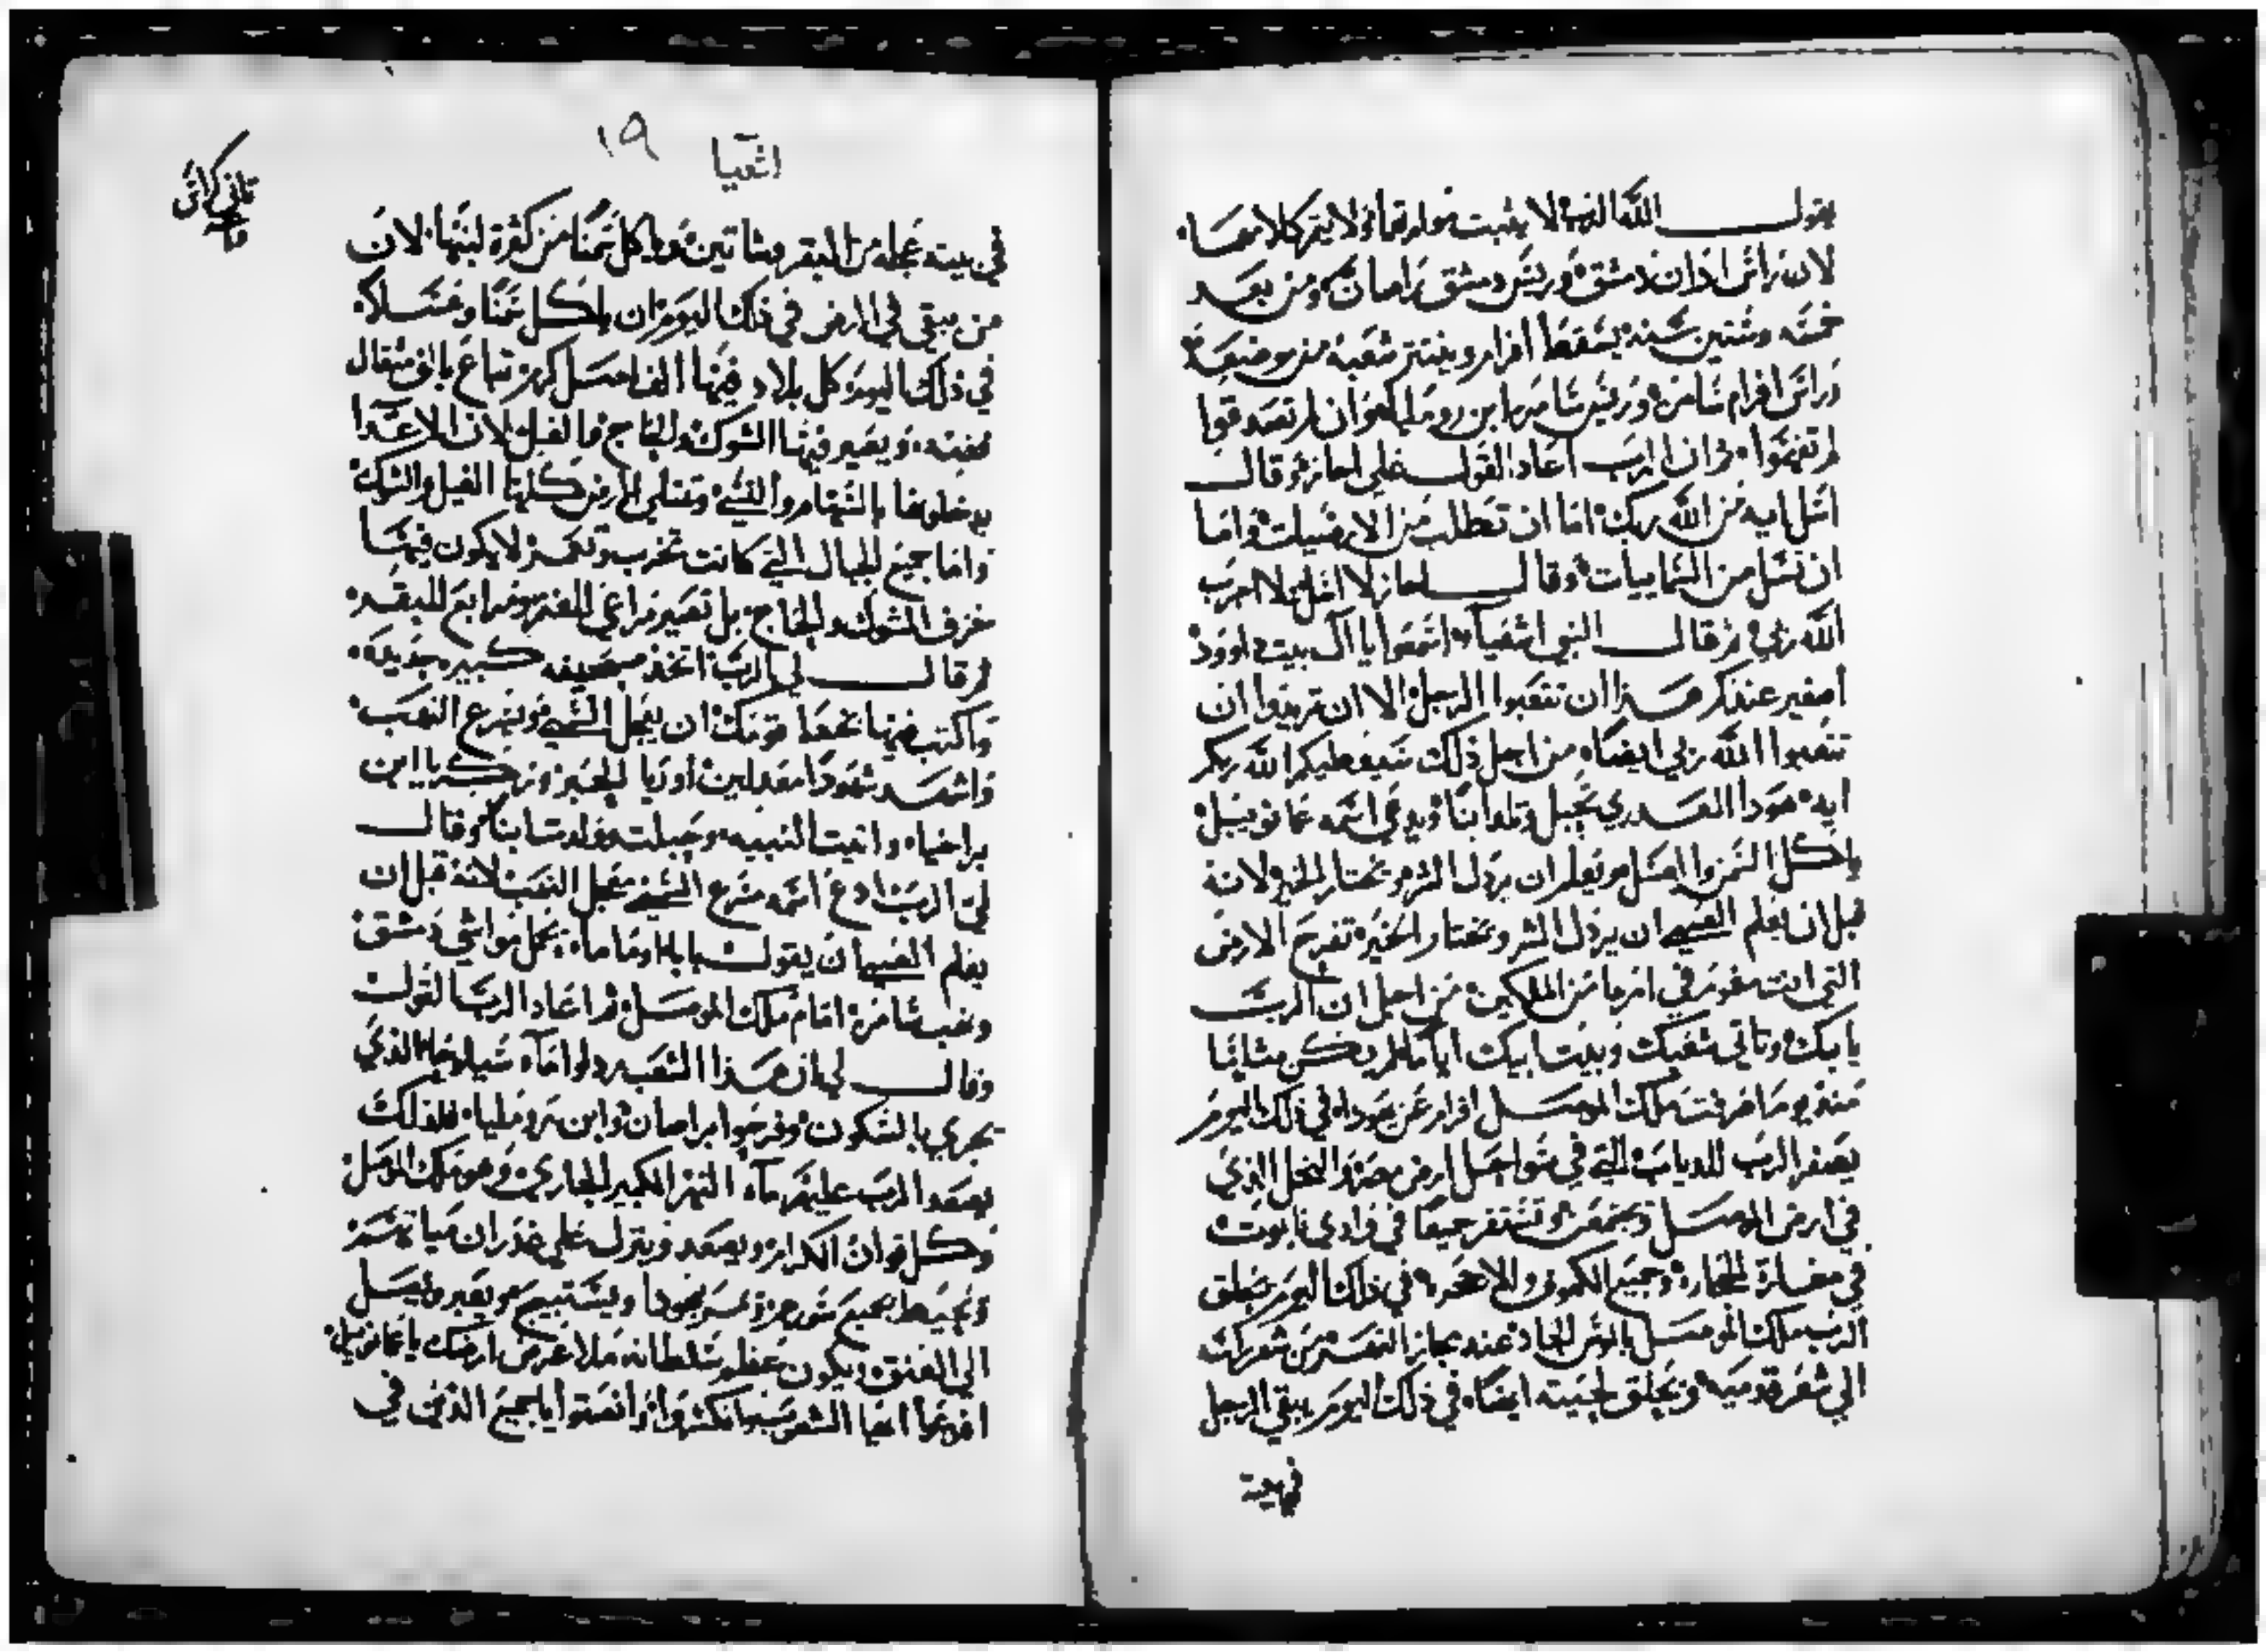 يقول الله الرب لا يثبت موامرتهما ولا يتم كلامهما
لان راس ادان دمشق وريس دمشق راصان ومن بعد
خمسه وستين سنه يسقط افرام ويفتتر شعبه من موضعه
وراس افرام سامره وريس سامره ابن رومليا وان لم تصدقوا
لم تفهموا وان الرب اعاد القول علي احاز وقال
اسل ايه من الله ربك اما ان تطلب من الارضيات واما
ان تسل من السماييات وقال احاز لا اسل ولا اجرب
الله ربي ثم قال النبي اشعيا اسمعوا يا ال بيت داوود
اصغير عندكم هذا ان تتعبوا الرجل الا ان تريدوا ان
تتعبوا الله ربي ايضا من اجل ذلك سيعطيكم الله ربكم
ايه هودا العدري تحبل وتلد ابنا ويدعي اسمه عمانوييل
ياكل السمن والعسل ويعلم ان يردل الشر ويختار الخير لانه
قبل ان يعلم الصبي ان يردل الشر ويختار الخير تفرح الارض
التي انت مغموم في امرها من الملكين من اجل ان الرب
ياتيك وتاتي شعبك وبيت ابيك اياما لم يكن مثلها
منذ يوم اصرفت ملك الموصل افرام عن يهودا في ذلك اليوم
يصفر الرب للدباب التي في سواحل ارض مصر والنحل الذي
في ارض الموصل ويجتمعن وتستقر جميعا في وادي نابوت
في مغارة الحجارة وجميع الكهوف والاجحره في ذلك اليوم يحلق
الرب ملك الموصل بالموس الحاد عند مجاز النهر من شعر راسه
الي شعر قدميه ويحلق لحيته ايضا في ذلك اليوم يبقي الرجل
في بيته
اشعيا
١٩
تاني كراس
في بيته عجله من البقر وشاتين وياكل سمنا من كثرة لبنها لان
من يبقي في الارض في ذلك اليوم ان ياكل سمنا وعسلا
في ذلك اليوم كل بلاد فيها الف اصل كرم تباع بالف مثقال
فضه ويصير فيها الشوك والحاج والفيل لان الاعدا
يدخلونها بالسهام والقسي وتمتلي الارض كلها الفيل والشوك
واما جميع الجبال التي كانت تخرب وتعمر لا يكون فيها
خوف الشوك والحاج بل تصير مراعي للغنم ومرابع للبقر
ثم قال لي الرب اتخذ صحيفه كبيره جديده
واكتب فيها بخط قومك ان يعجل السبي ويسرع النهب
واشهد شهودا معدلين اوريا الحبر وزكريا ابن
براخيا واتيت النبيه وحبلت وولدت ابنا وقال
لي الرب ادع اسمه مسرع السبي معجل النهب لانه قبل ان
يعلم الصبي ان يقول يا ابا واماه يحمل مواشي دمشق
ونهب سامره امام ملك الموصل ثم اعاد الرب القول
وقال لي ان هذا الشعب ردلوا ماء شيلوحا الذي
يجري بالسكون وفرحوا براصان وابن روملياء فلذلك
يصعد الرب عليهم ماء النهر الكبير الجاري وهو ملك الموصل
وكل قوات الكرامه ويصعد وينزل علي غدران مياهه
ويحيط بجميع سورهم ويمر بيهودا ويستبيح ويعبر ويصل
الي العنق ويكون عظم سلطانه ملا عرض ارضك يا عمانوييل
افزعوا ايها الشعوب وانكسروا وانصتوا يا جميع الذين في